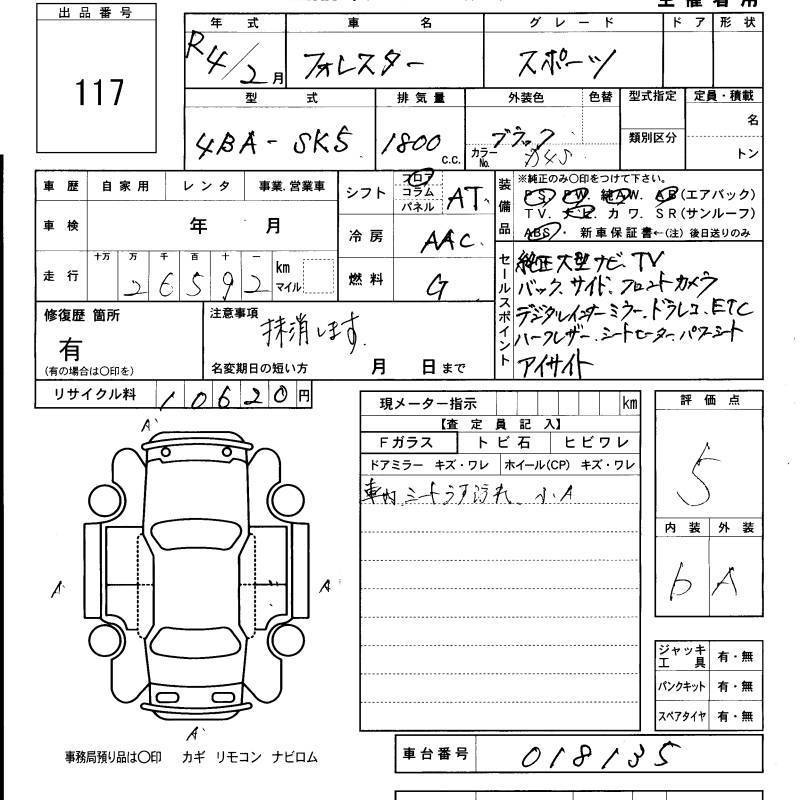 出品番号
117
年式 車名 グレード ドア 形状
R4/2月 フォレスター スポーツ
型式 排気量 外装色 色替 型式指定 定員・積載
4BA-SK5 1800 c.c. ブラック カラーNo. D4S 類別区分 名 トン
車歴 自家用 レンタ 事業.営業車
シフト フロア コラム パネル AT
装備品 ※純正のみ〇印をつけて下さい。
PS. PW. 純AW. AB(エアバック)
TV. ナビ. カワ. SR(サンルーフ)
ABS・ 新車保証書←(注) 後日送りのみ
車検 年 月
冷房 AAC
走行 十万 万 千 百 十 一
26592 km マイル
燃料 G
セールスポイント 純正大型ナビ、TV
バック、サイド、フロントカメラ
デジタルインナーミラー、ドラレコ、ETC
ハーフレザー、シートヒーター、パワーシート
アイサイト
修復歴 箇所
有
(有の場合は〇印を)
注意事項
抹消します。
名変期日の短い方 月 日まで
リサイクル料 10620円
現メーター指示 km
【査定員記入】
Fガラス トビ石 ヒビワレ
ドアミラー キズ・ワレ ホイール(CP) キズ・ワレ
車内、シートうす汚れ、小A
評価点
5
内装 外装
b A
A'
A' A'
A'
ジャッキ工具 有・無
パンクキット 有・無
スペアタイヤ 有・無
事務局預り品は〇印 カギ リモコン ナビロム
車台番号 018135